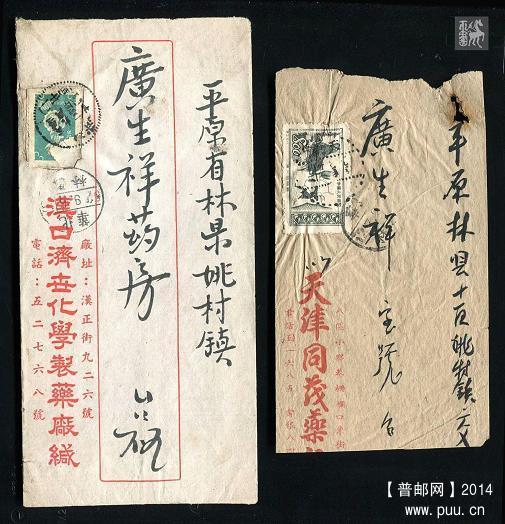 平原省林県姚村鎮
廣生祥药房
廠址：漢正街九二六號
漢口濟世化學製藥廠緘
電話：五二七六八號
平原林县十区姚村鎮交
廣生祥 宝號 台
天津同茂藥
【普邮网】2014
www.puu.cn